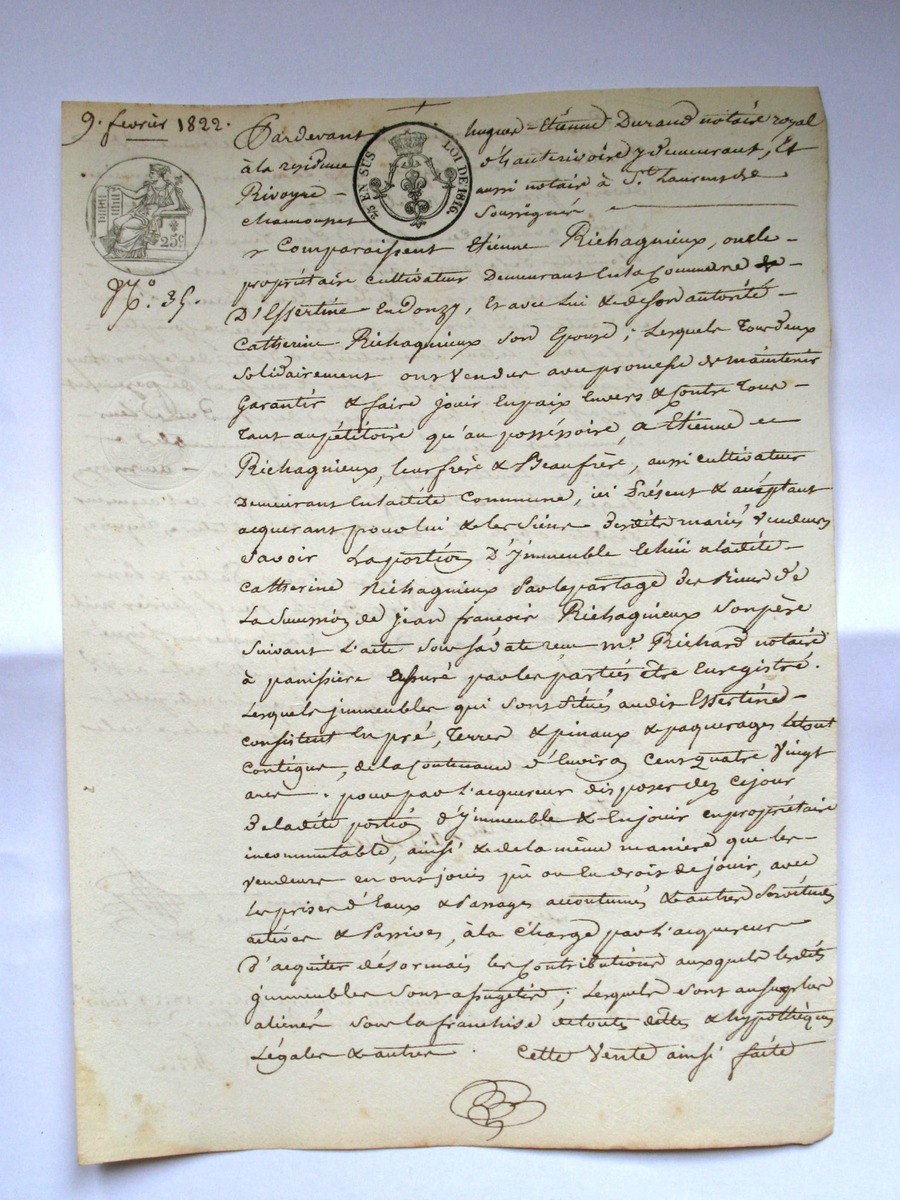 9. fevrier 1822.
Pardevant hugues Etienne Durand notaire royal
à la residence d'hauterivoire y demeurant, Et
Rivoyre - aussi notaire à St. Laurent de
chamousset Soussignés
25 EN SUS LOI DE 1816.
25c
No. 35.
Comparaissent Etienne Richagnieux, oncle -
propriétaire cultivateur Demeurant En la Commune
D'Essertine - En Donzy, Et avec Lui & de son autorité -
Catherine Richagnieux son Epouse ; Lesquels Tous deux
solidairement ont vendu avec promesse de maintenir
Garantir & faire jouir En paix Envers & Contre Tous -
Tant au pétitoire qu'au posséssoire, a Etienne
Richagnieux, leur frère & Beaufrère, aussi cultivateur
Demeurant En ladite Commune, ici Présent & acéptant
acquerant pour lui & les Siens desdits mariés Vendeurs
Savoir La portion D'jmmeuble Echüe a ladite -
Catherine Richagnieux Par le partage des Biens de
La Succession de jean francois Richagnieux son père
Suivant L'acte Sous sa date reçu me. Richard notaire
à panissière assuré par les parties être Enregistré.
Lesquels jmmeubles qui sont situés audit Essertine -
consistent En pré, Terres & pinaux & paquerages le tout
Contigue, de la Contenance d'Environ Cent quatre Vingt
ares. pour par L'acquereur disposer dez ce jour
de ladite portion d'jmmeuble & En jouir en propriétaire
incommutable, ainsi & de la même maniere que les -
vendeurs en ont jouis pû ou En droit de jouir, avec
Les prises d'Eaux & Passages accoutumés & autres Servitudes
actives & Passives, à la Charge par L'acquereur
D'acquiter désormais les Contributions auxquels lesdits
jmmeubles sont assugetis ; Lesquels sont au surplus
aliénés sous la franchise de toutes dettes & hypothèques
Légales & autres. Cette Vente ainsi faite